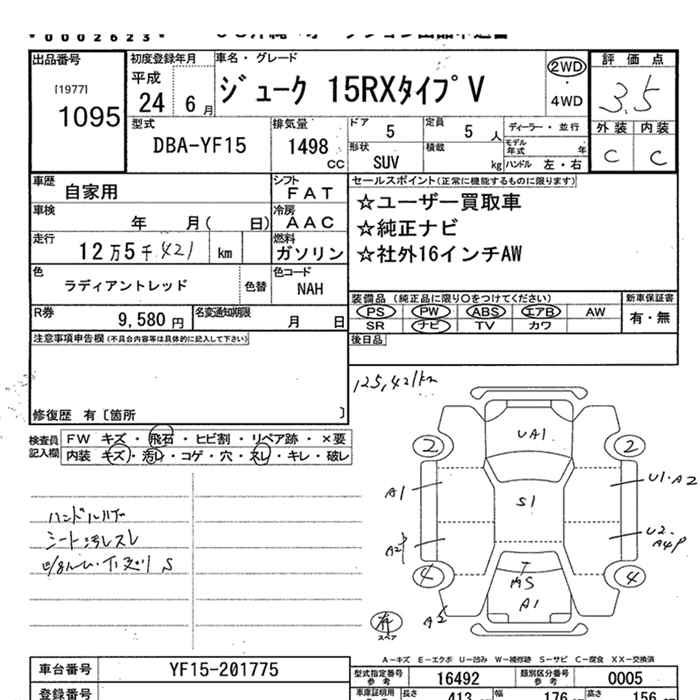 *0002623*
出品番号
[1977]
1095
初度登録年月
平成
24 6月
車名・グレード
ジューク 15RXタイプV
2WD
・
4WD
評価点
3.5
外装 内装
C C
型式
DBA-YF15
排気量
1498
CC
ドア
5
定員
5 人
形状
SUV
積載
kg
ディーラー・並行
モデル年式 年
ハンドル 左・右
車歴
自家用
シフト
FAT
車検
年 月( 日)
冷房
AAC
走行
12万5千421 km
燃料
ガソリン
色
ラディアントレッド
色替
色コード
NAH
R券
9,580円
名変通知期限
月 日
セールスポイント(正常に機能するものに限ります)
☆ユーザー買取車
☆純正ナビ
☆社外16インチAW
装備品 (純正品に限り○をつけてください)
PS PW ABS エアB AW
SR ナビ TV カワ
新車保証書
有・無
後日品
注意事項申告欄(不具合内容等は具体的に記入して下さい)
修復歴 有〔箇所 〕
検査員記入欄
FW キズ・飛石・ヒビ割・リペア跡・×要
内装 キズ・汚れ・コゲ・穴・スレ・キレ・破レ
ハンドルハゲ
シート汚レスレ
S
125,421km
2 UA1 2
A1 S1 U1・A2
A2 U2・A4P
4 MS 4
A1
A2
有
スペア
A－キズ E－エクボ U－凹み W－補修跡 S－サビ C－腐食 XX－交換済
車台番号
YF15-201775
登録番号
型式指定番号
参考
16492
類別区分番号
参考
0005
車庫証明用
長さ 413 幅 176 高さ 156